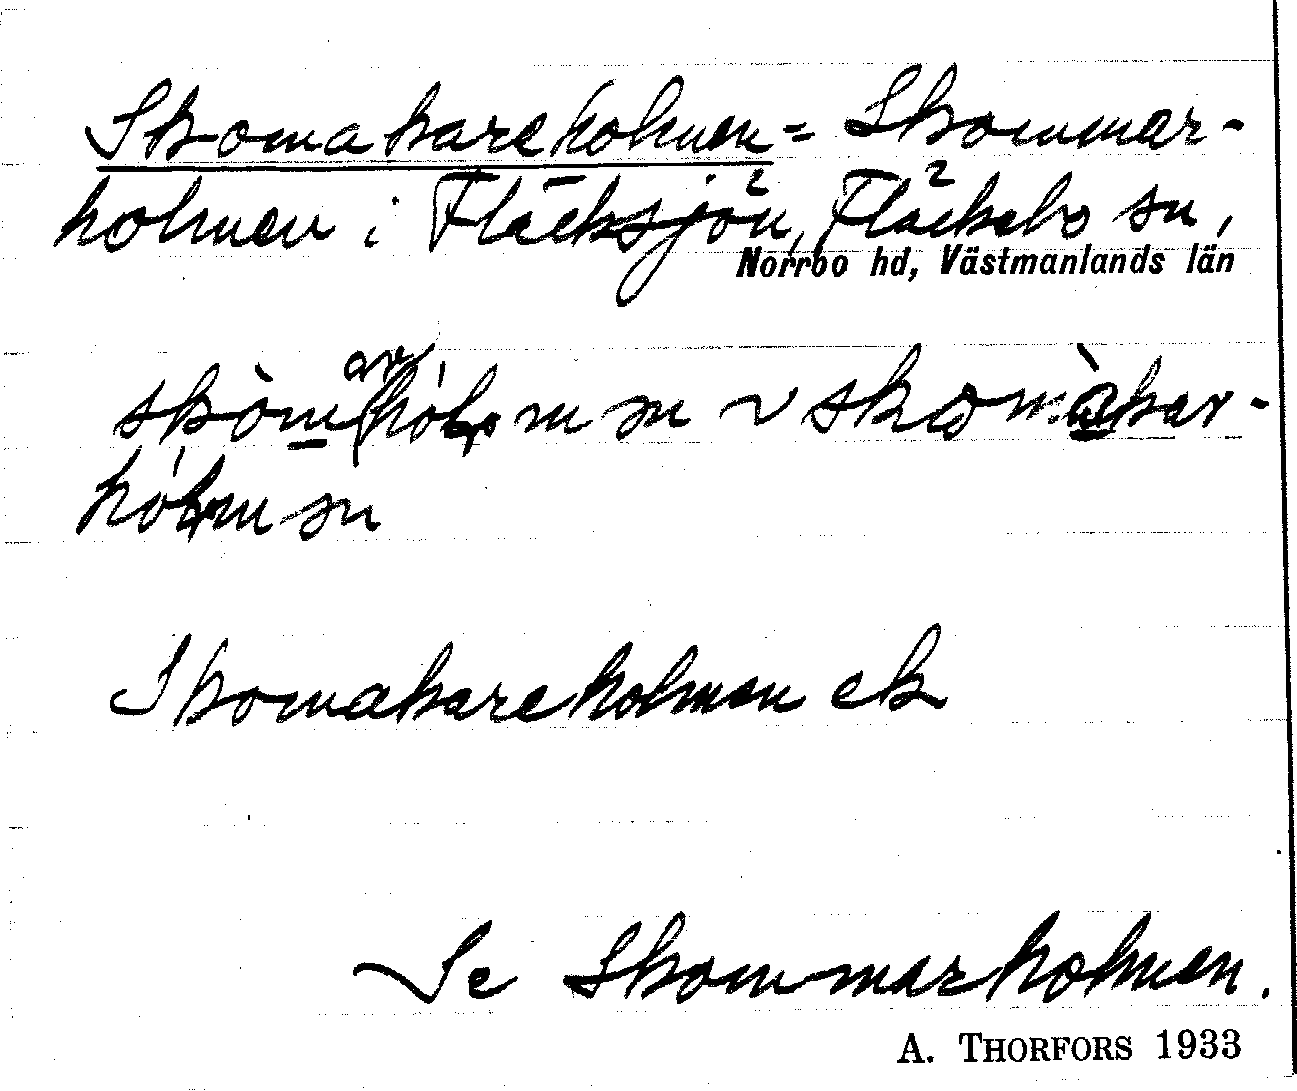 Skomakareholmen = Skommar-
holmen i Fläcksjön, Fläckebo sn,
Norrbo hd, Västmanlands län
skòm(arhólmən ~ skomàkar-
hólmən
Skomakareholmen ek
Se Skommarholmen.
A. THORFORS 1933